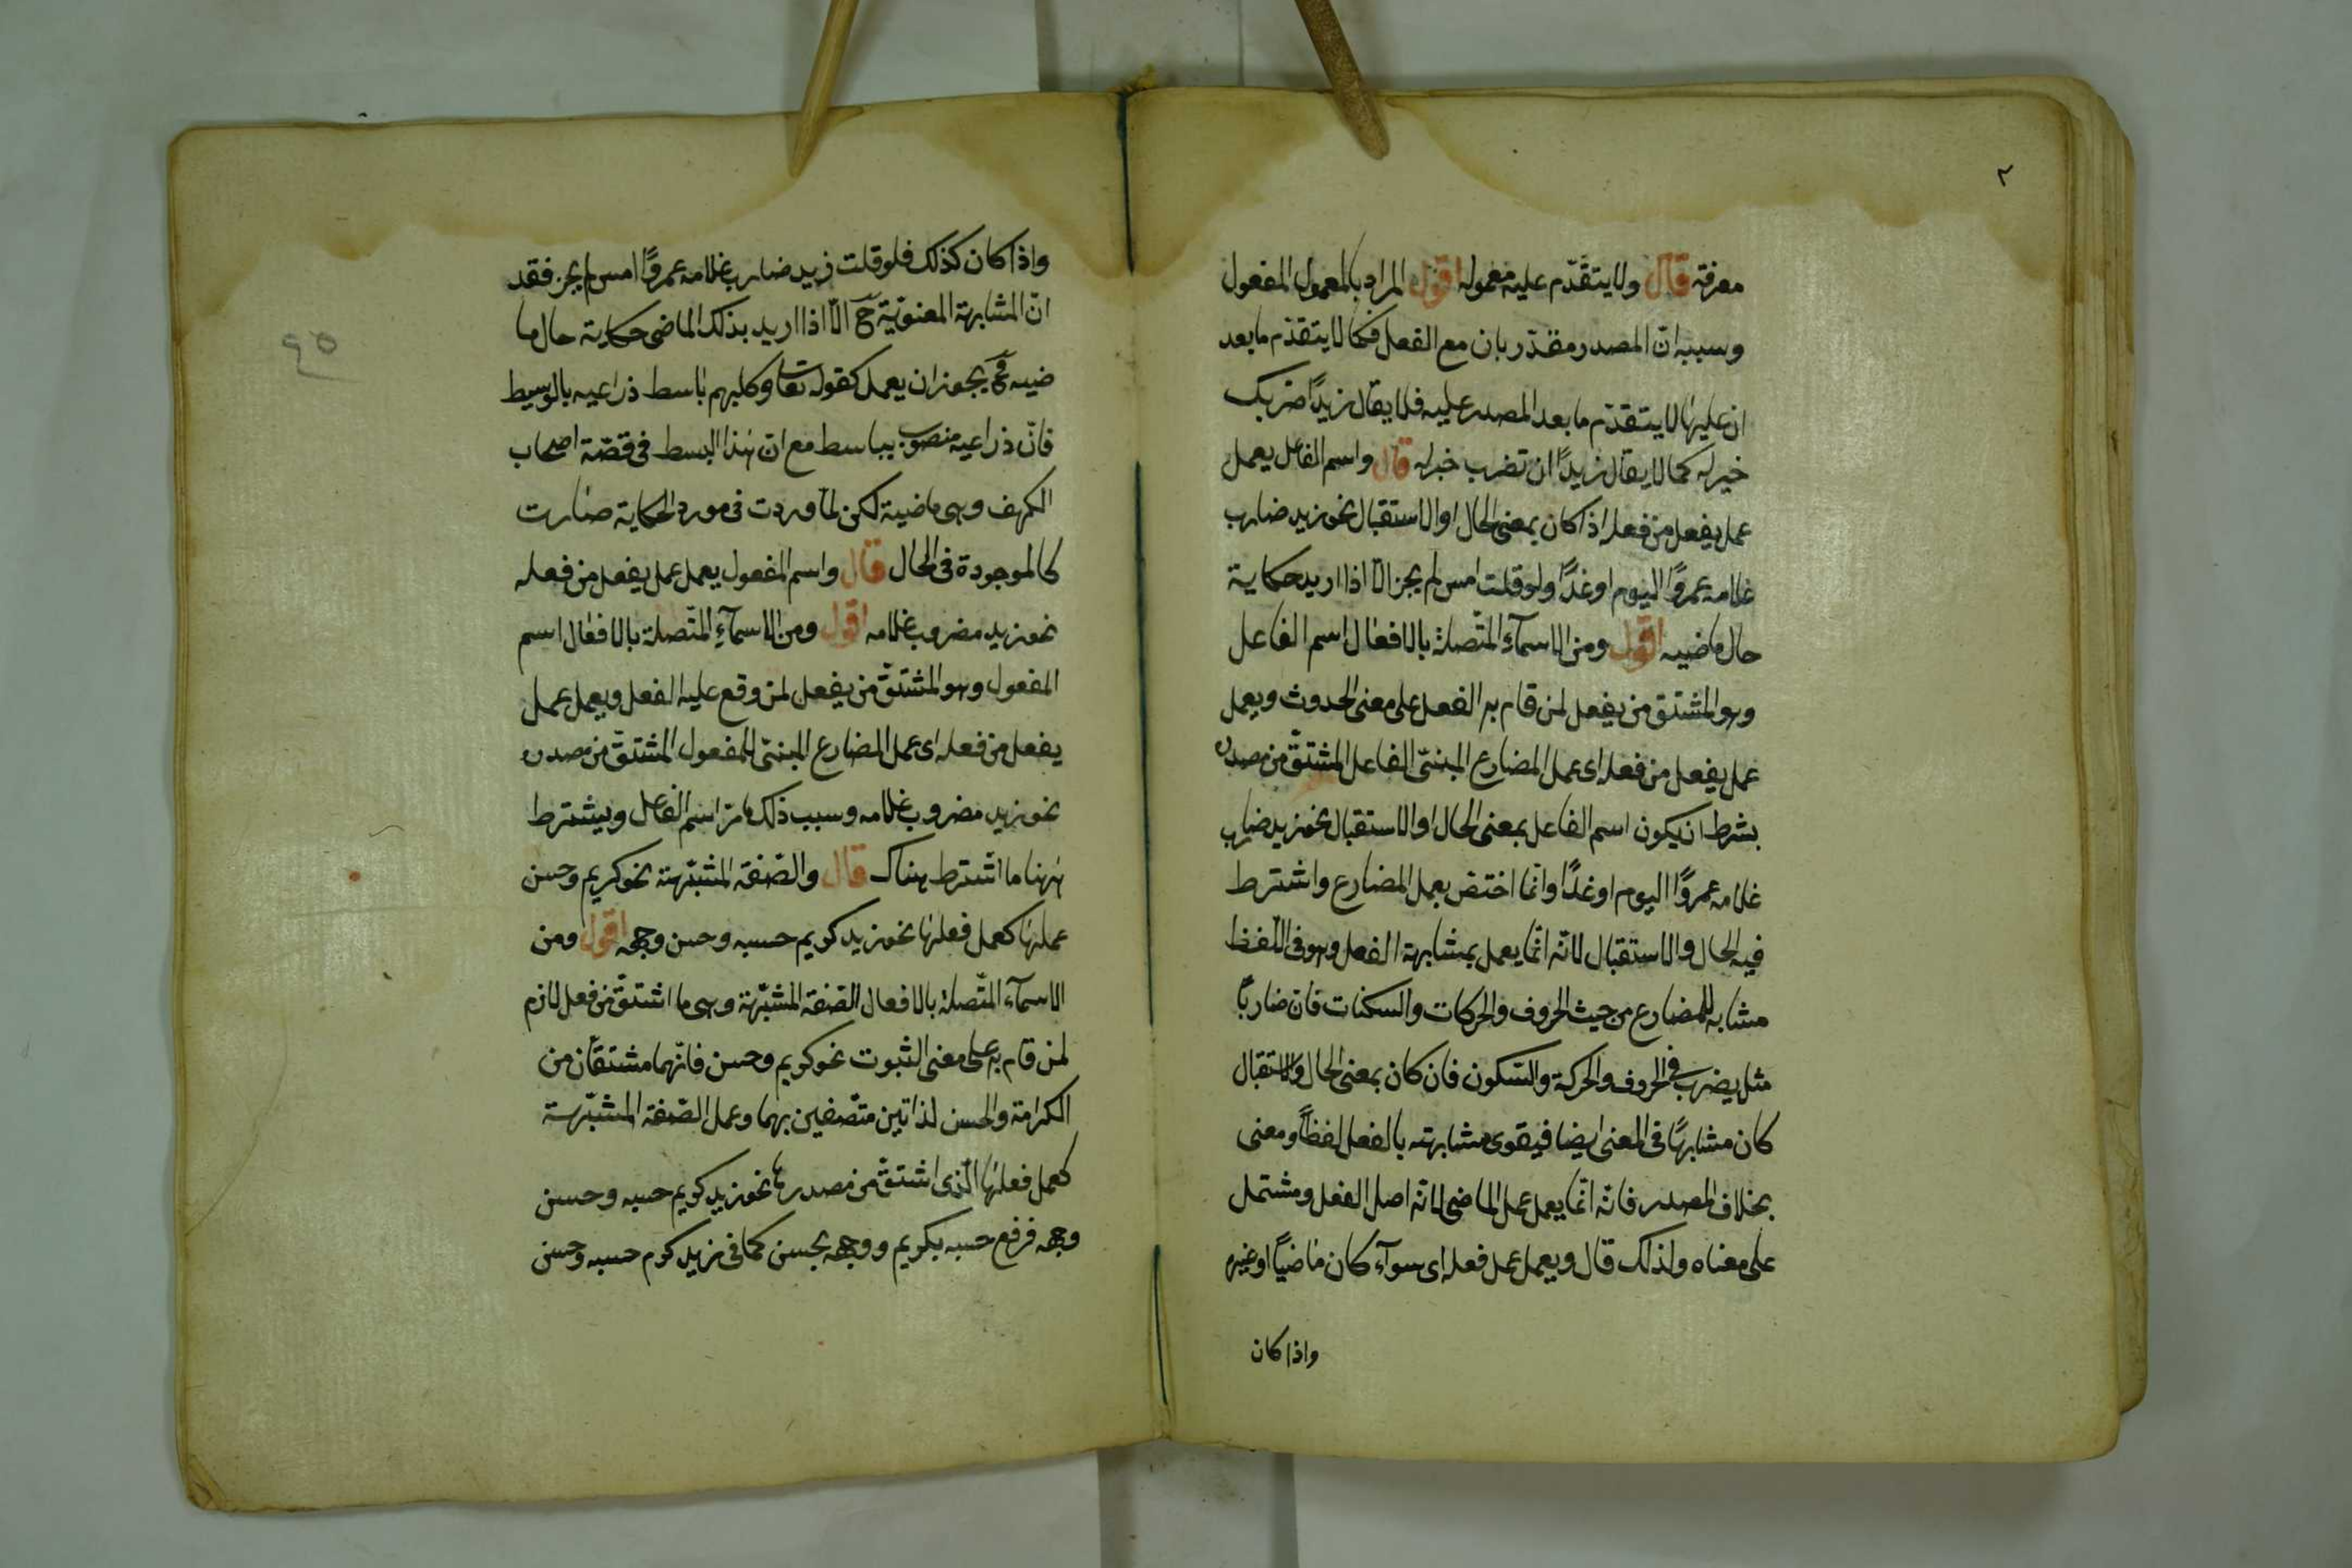 ٢
معرفة قال ولا يتقدّم عليه معموله اقول المراد بالمعمول المفعول
وسببه انّ المصدر مقدّر بان مع الفعل فكما لا يتقدّم ما بعد
ان عليها لا يتقدّم ما بعد المصدر عليه فلا يقال زيدًا ضربك
خير له كما لا يقال زيدًا ان تضرب خير له قال واسم الفاعل يعمل
عمل يفعل من فعله اذا كان بمعنى الحال او الاستقبال نحو زيد ضارب
غلامه عمروًا اليوم او غدًا ولو قلت امس لم يجز الّا اذا اريد حكاية
حال ماضيه اقول ومن الاسمآء المتّصلة بالافعال اسم الفاعل
وهو المشتق من يفعل لمن قام به الفعل على معنى الحدوث ويعمل
عمل يفعل من فعله اى عمل المضارع المبنىّ الفاعل المشتقّ من مصدره
بشرط ان يكون اسم الفاعل بمعنى الحال او الاستقبال نحو زيد ضارب
غلامه عمروًا اليوم او غدًا وانّما اختصّ بعمل المضارع واشترط
فيه الحال والاستقبال لانّه انّما يعمل بمشابهة الفعل وهو فى اللّفظ
مشابه للمضارع من حيث الحروف والحركات والسكنات فان ضاربًا
مثل يضرب فى الحروف والحركة والسّكون فان كان بمعنى الحال والاستقبال
كان مشابهًا فى المعنى ايضا فيقوى مشابهته بالفعل لفظًا ومعنى
بخلاف المصدر فانّه انّما يعمل عمل الماضى لانّه اصل الفعل ومشتمل
على معناه ولذلك قال ويعمل عمل فعله اى سوآء كان ماضيًا او غيره
واذا كان
واذا كان كذلك فلو قلت زيد ضارب غلامه عمروًا امس لم يجز فقد
انّ المشابهة المعنويّة ح الّا اذا اريد بذلك الماضى حكاية حال ما
ضيه فح يجوز ان يعمل كقوله تعا وكلبهم باسط ذراعيه بالوسيط
فانّ ذراعيه منصوب بباسط مع انّ هذا البسط فى قصّة اصحاب
الكهف وهى ماضية لكن لمّا وردت فى مورد الحكاية صارت
كالموجودة فى الحال قال واسم المفعول يعمل عمل يفعل من فعله
نحو زيد مضروب غلامه اقول ومن الاسمآء المتّصلة بالافعال اسم
المفعول وهو المشتقّ من يفعل لمن وقع عليه الفعل ويعمل عمل
يفعل من فعله اى عمل المضارع المبنىّ للمفعول المشتقّ من مصدره
نحو زيد مضروب غلامه وسبب ذلك ما مرّ اسم الفاعل ويشترط
ههنا ما اشترط هناك قال والصّفة المشبّهة نحو كريم وحسن
عملها كعمل فعلها نحو زيد كريم حسبه وحسن وجهه اقول ومن
الاسمآء المتّصلة بالافعال الصّفة المشبّهة وهى ما اشتقّ من فعل لازم
لمن قام به على معنى الثبوت نحو كريم وحسن فانّهما مشتقّان من
الكرامة والحسن لذاتين متّصفين بهما وعمل الصّفة المشبّهة
كعمل فعلها الّذى اشتقّ من مصدرها نحو زيد كريم حسبه وحسن
وجهه فرفع حسبه بكريم ووجهه بحسن كما فى زيد كرم حسبه وحسن